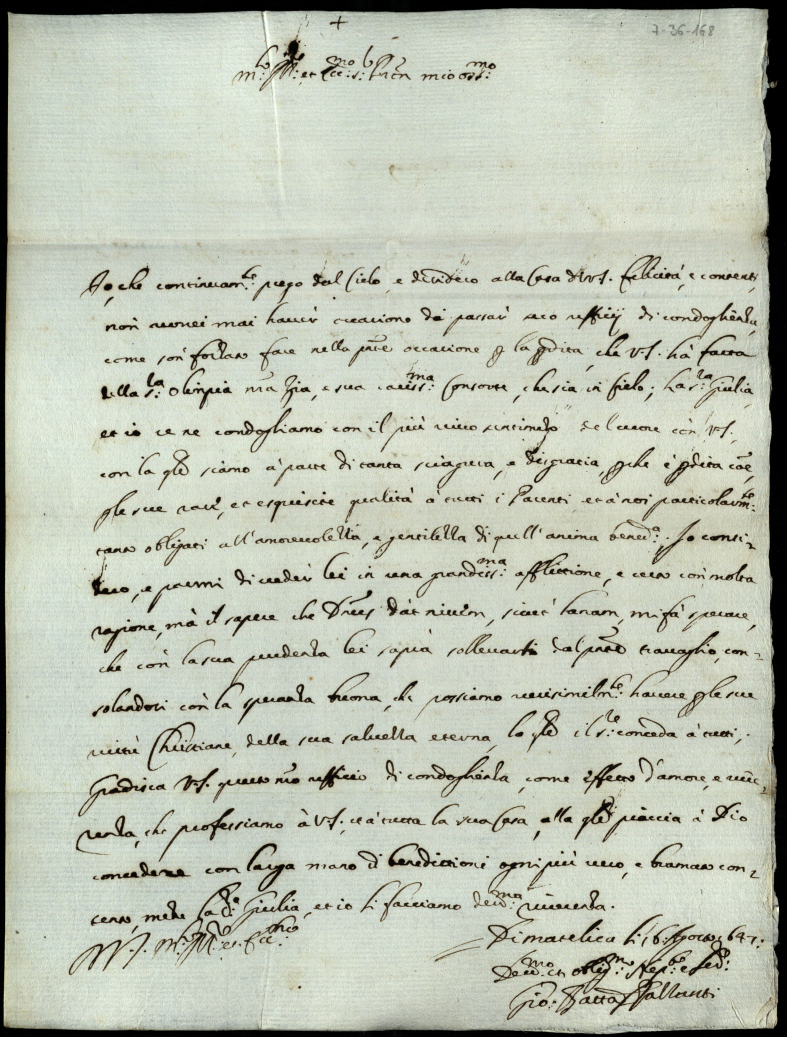 +
7-36-168
m.to Ill.re et Ecc.mo s.r mio oss.mo
Io, che continuam.te prego dal Cielo, e desidero alla Casa di V.S. fellicità, e contenti,
non vorrei mai haver occasione di passar seco ufficij di condoglienza,
come son forzato fare nella pnte occasione p la pdita, che V.S. hà fatta
della s.ra Olimpia nra Zia, e sua cariss.ma Consorte, che sia in Cielo; la s.ra Giulia,
et io ce ne condogliamo con il più vivo sentimento del cuore con V.S.,
con la qle siamo à parte di tanta sciagura, e disgratia, pche è pdita coe
p le sue rare, et esquisite qualità à tutti i Parenti et à noi particolarm.te
tanto obligati all'amorevolezza, e gentilezza di quell'anima bened.a. Io consi-
dero, e parmi di veder lei in una grandiss.ma afflittione, e certo con molta
ragione, mà il sapere che Dnus dat nivem, sicut lanam, mi fà sperare,
che con la sua prudenza lei saprà sollevarsi dal pnte travaglio, con-
solandosi con la speranza buona, che possiamo verisimilm.te havere p le sue
virtù Christiane, della sua salvezza eterna, la qle il s.re conceda à tutti;
Gradisca V.S. questo nro ufficio di condoglienza, come effetto d'amore, e rive-
renza, che professiamo à V.S., et à tutta la sua Casa, alla qle piaccia à Dio
concedere con larga mano di benedittioni ogni più vero, e bramato con-
tento, mentre la s.ra Giulia, et io li facciamo dev.ma riverenza.
Di V.S. m.to Ill.re et Ecc.ma
Di Matelica li 16 Agosto 1647:
Dev.mo et oblig.mo Nep.te e Ser.:
Gio: Batta Pallanti